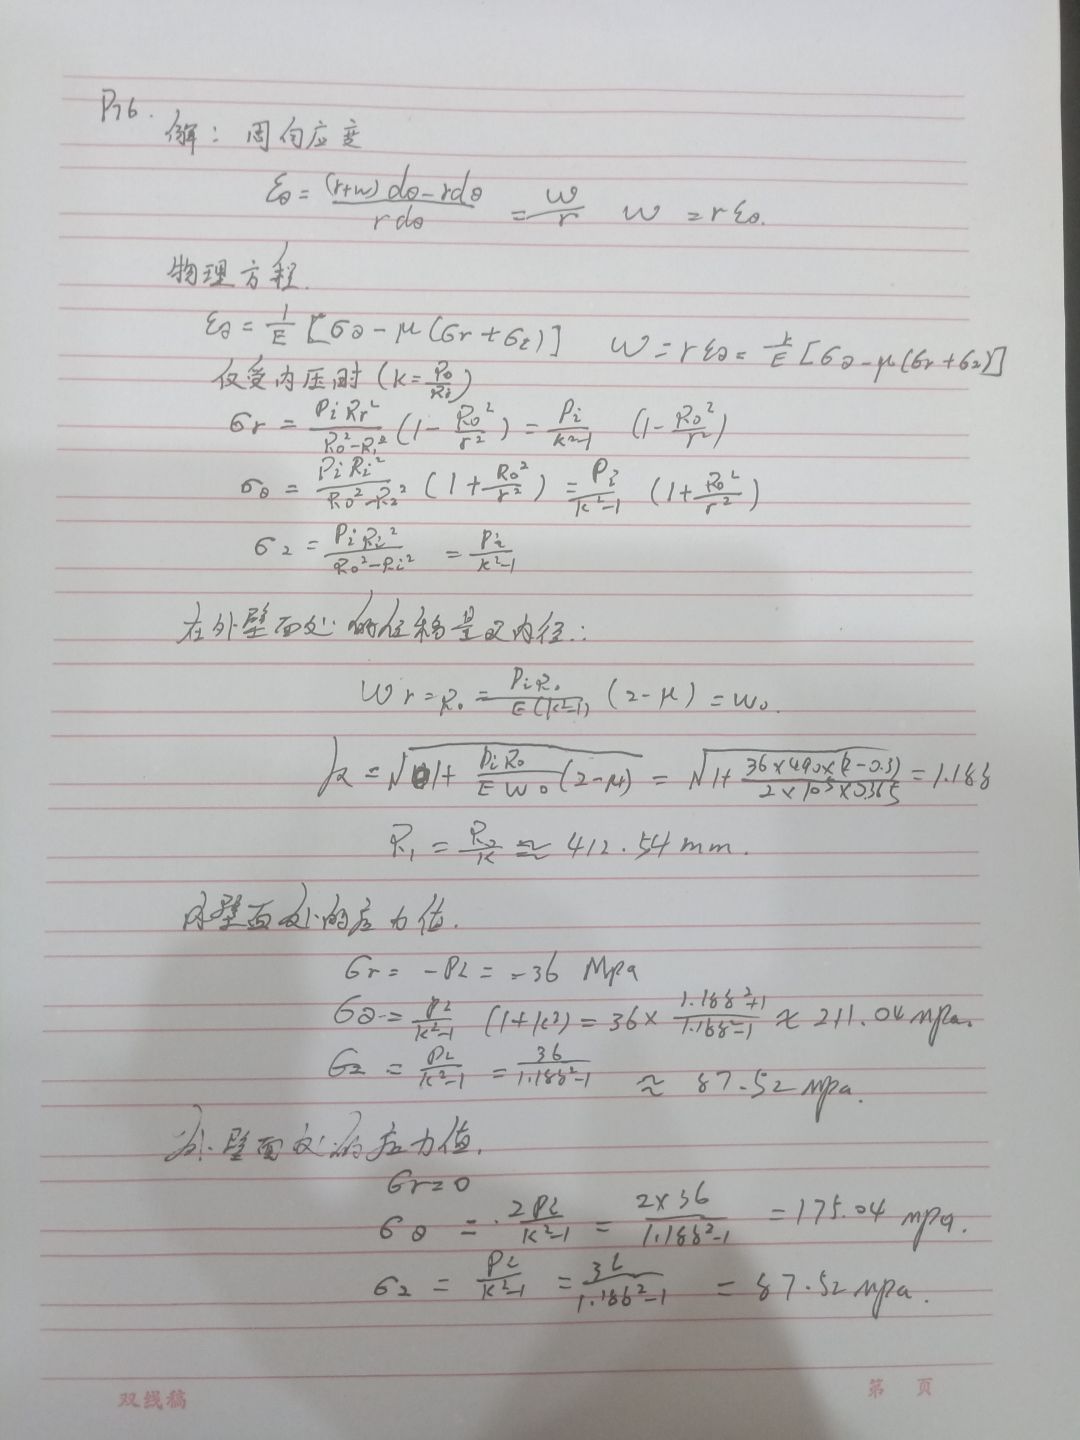 P76.
解：周向应变
εθ = (r+w)dθ-rdθ / rdθ = w/r  w = rεθ.
物理方程.
εθ = 1/E [σθ - μ(σr + σz)]  w = rεθ = r/E [σθ - μ(σr + σz)]
仅受内压时 (K = Ro/Ri)
σr = PiRr²/Ro²-Ri² (1 - Ro²/r²) = Pi/k²-1 (1 - Ro²/r²)
σθ = PiRi²/Ro²-Ri² (1 + Ro²/r²) = Pi/k²-1 (1 + Ro²/r²)
σz = PiRi²/Ro²-Ri² = Pi/k²-1
在外壁面处的位移量及内径:
w r=Ro = PiRo/E(k²-1) (2-μ) = wo.
k = √1 + PiRo/Ewo (2-μ) = √1 + 36×490×(2-0.3)/2×10⁵×0.365 = 1.188
R1 = Ro/K ≈ 412.54mm.
内壁面处的应力值.
σr = -Pi = -36 Mpa
σθ = Pi/k²-1 (1+k²) = 36× 1.188²+1/1.188²-1 ≈ 211.04 mpa.
σz = Pi/k²-1 = 36/1.188²-1 ≈ 87.52 mpa.
外壁面处的应力值.
σr=0
σθ = 2Pi/k²-1 = 2×36/1.188²-1 = 175.04 mpa.
σz = Pi/k²-1 = 36/1.188²-1 = 87.52 mpa.
双线稿
第 页